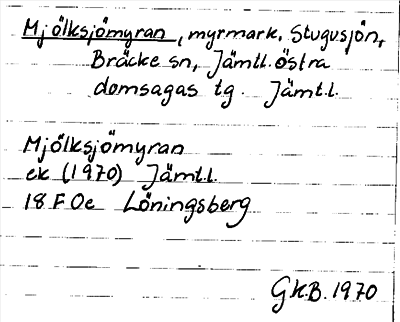 Mjölksjömyran, myrmark, Stugusjön,
Bräcke sn, Jämtl. östra
domsagas tg. Jämtl.
Mjölksjömyran
ek (1970) Jämtl.
18 F Oe Löningsberg
G.K.B. 1970